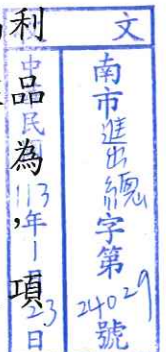 文
南市進出總字第24029號
中民113年1 23日
利
品為，項